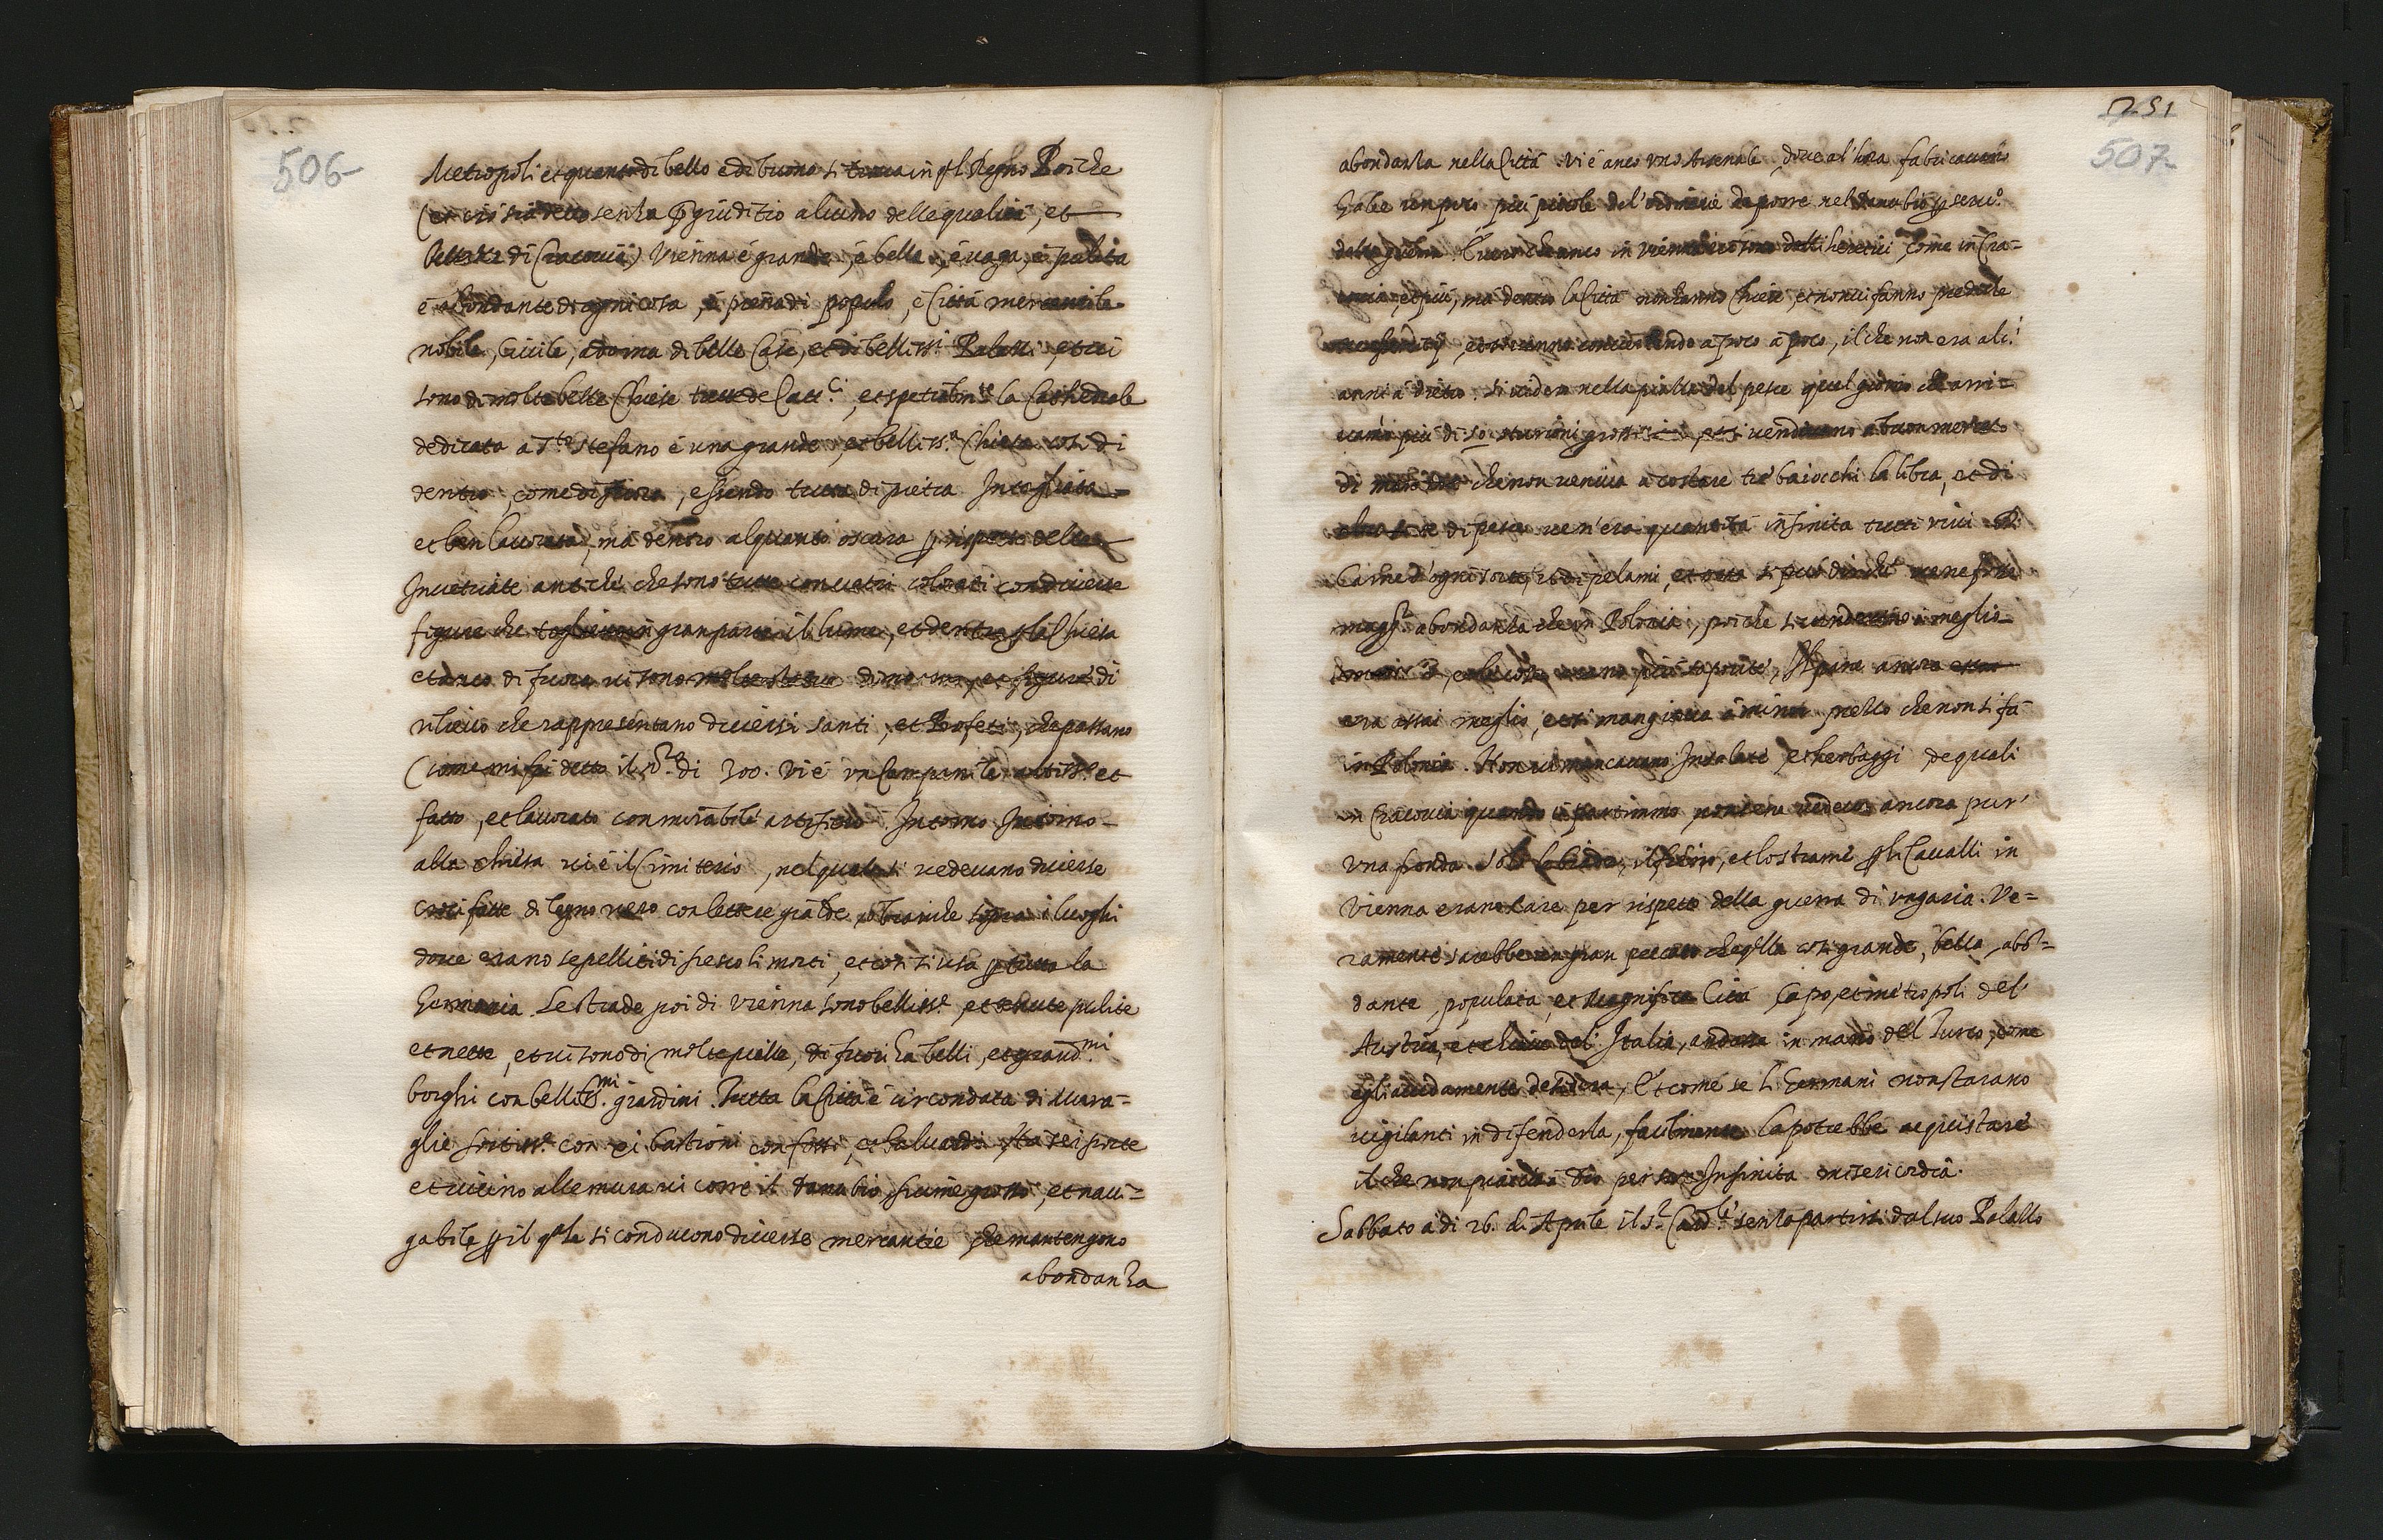 506
Metropoli et quanto di bello e di buono si trova in q.l Regno Poiche
(et ciò sia detto senza p̱giuditio alcuno delle qualità, et
bellezze di Cracovia) Vienna é grande, é bella, é vaga, é pulita
é abondante di ogni cosa, é piena di populo, é Città mercantile
nobile, Civile, adorna di belle Case, et di belliss.i Palazzi, et vi
sono di molte belle Chiese tutte de Catt.ci, et spetialm.te la Cathedrale
dedicata a S.to Stefano é una grande, et belliss.a Chiesa così di
dentro, come di fuora, essendo tutta di pietra Intagliata
et ben lavorata, má dentro alquanto oscura p rispetto delle
Invetriate antiche che sono tutte con vetri colorati con diverse
figure che togliono in gran parte il lume, et dentro p la Chiesa
et anco di fuora vi sono molte statue di marmo, et figure di
rilievo che rappresentano diversi santi, et Profeti, che passano
(come mi fu detto il n.ro di 300. Vi é un Campanile altiss.o et
fatto, et lavorato con mirabile artifitio. Intorno Intorno
alla chiesa vi é il Cimiterio, nel quale si vedevano diverse
croci fatte di legno nero con lettere grandi bianche sopra i luoghi
dove erano sepelliti di fresco li morti, et così si usa p tutta la
Germania. Le strade poi di Vienna sono belliss.e et tenute pulite
et nette, et vi sono di molte pille, di fuori ha belli, et grand.mi
borghi con bellis.mi giardini. Tutta la Città é circondata di Mura=
glie fortiss.e con sei bastioni con fossi, et baluardi. Ha sei porte
et vicino alle mura vi corre il Danubio, fiume grosso, et navi=
gabile p il q.le si conducono diverse mercantie che mantengono
abondanza
251
507
abondanza nella Città. Vi é anco uno Arsenale, dove al'hora fabricavano
Galee un poco più picciole del'ordinarie da porre nel Danubio p serv.o
della guerra. È vero che anco in Vienna vi sono delli heretici, come in Cra=
covia, et più, má dentro la Città non hanno Chiese, et non vi fanno prediche
et si vanno convertendo a poco a poco, il che non era alc.i
anni á dietro. Si videro nella piazza del pesce quel giorno che arri=
vamo più di 50 sturioni grossi et si vendevano a buon mercato
di modo che non veniva a costare tré baiocchi la libra, et di
altra sorte di pesce ve n'era quantità infinita tutti vivi. Di
Carne d'ogni sorte, et di pelami, et ova si può dir che ve ne fosse
magg.r abondanza che in Polonia, poiche si vendevano a meglio
et le cose erano più saporite, Il pane ancora
era assai meglio, et si mangiava á minor prezzo che non si fá
in Polonia. Non vi mancavano Insalate, et herbaggi de quali
in Cracovia quando ci partimmo non se ne vedeva ancora pur'
una fronda. Solo la biada, il fieno, et lo strame p li Cavalli in
Vienna erano care per rispetto della guerra di Ungaria. Ve=
ramente sarebbe un gran peccato che q.lla così grande, bella, abõ=
dante, populata, et Magnifica Città Capo, et metropoli del'
Austria, et chiave del' Italia, andasse in mano del Turco, come
egli avidamente desidera, Et come se li Germani non starano
vigilanti in difenderla, facilmente la potrebbe acquistare
il che non piaccia á Dio per sua Infinita misericordia.
Sabbato a di 26. di Aprile il s.r Card.le senza partirsi dal suo Palazzo